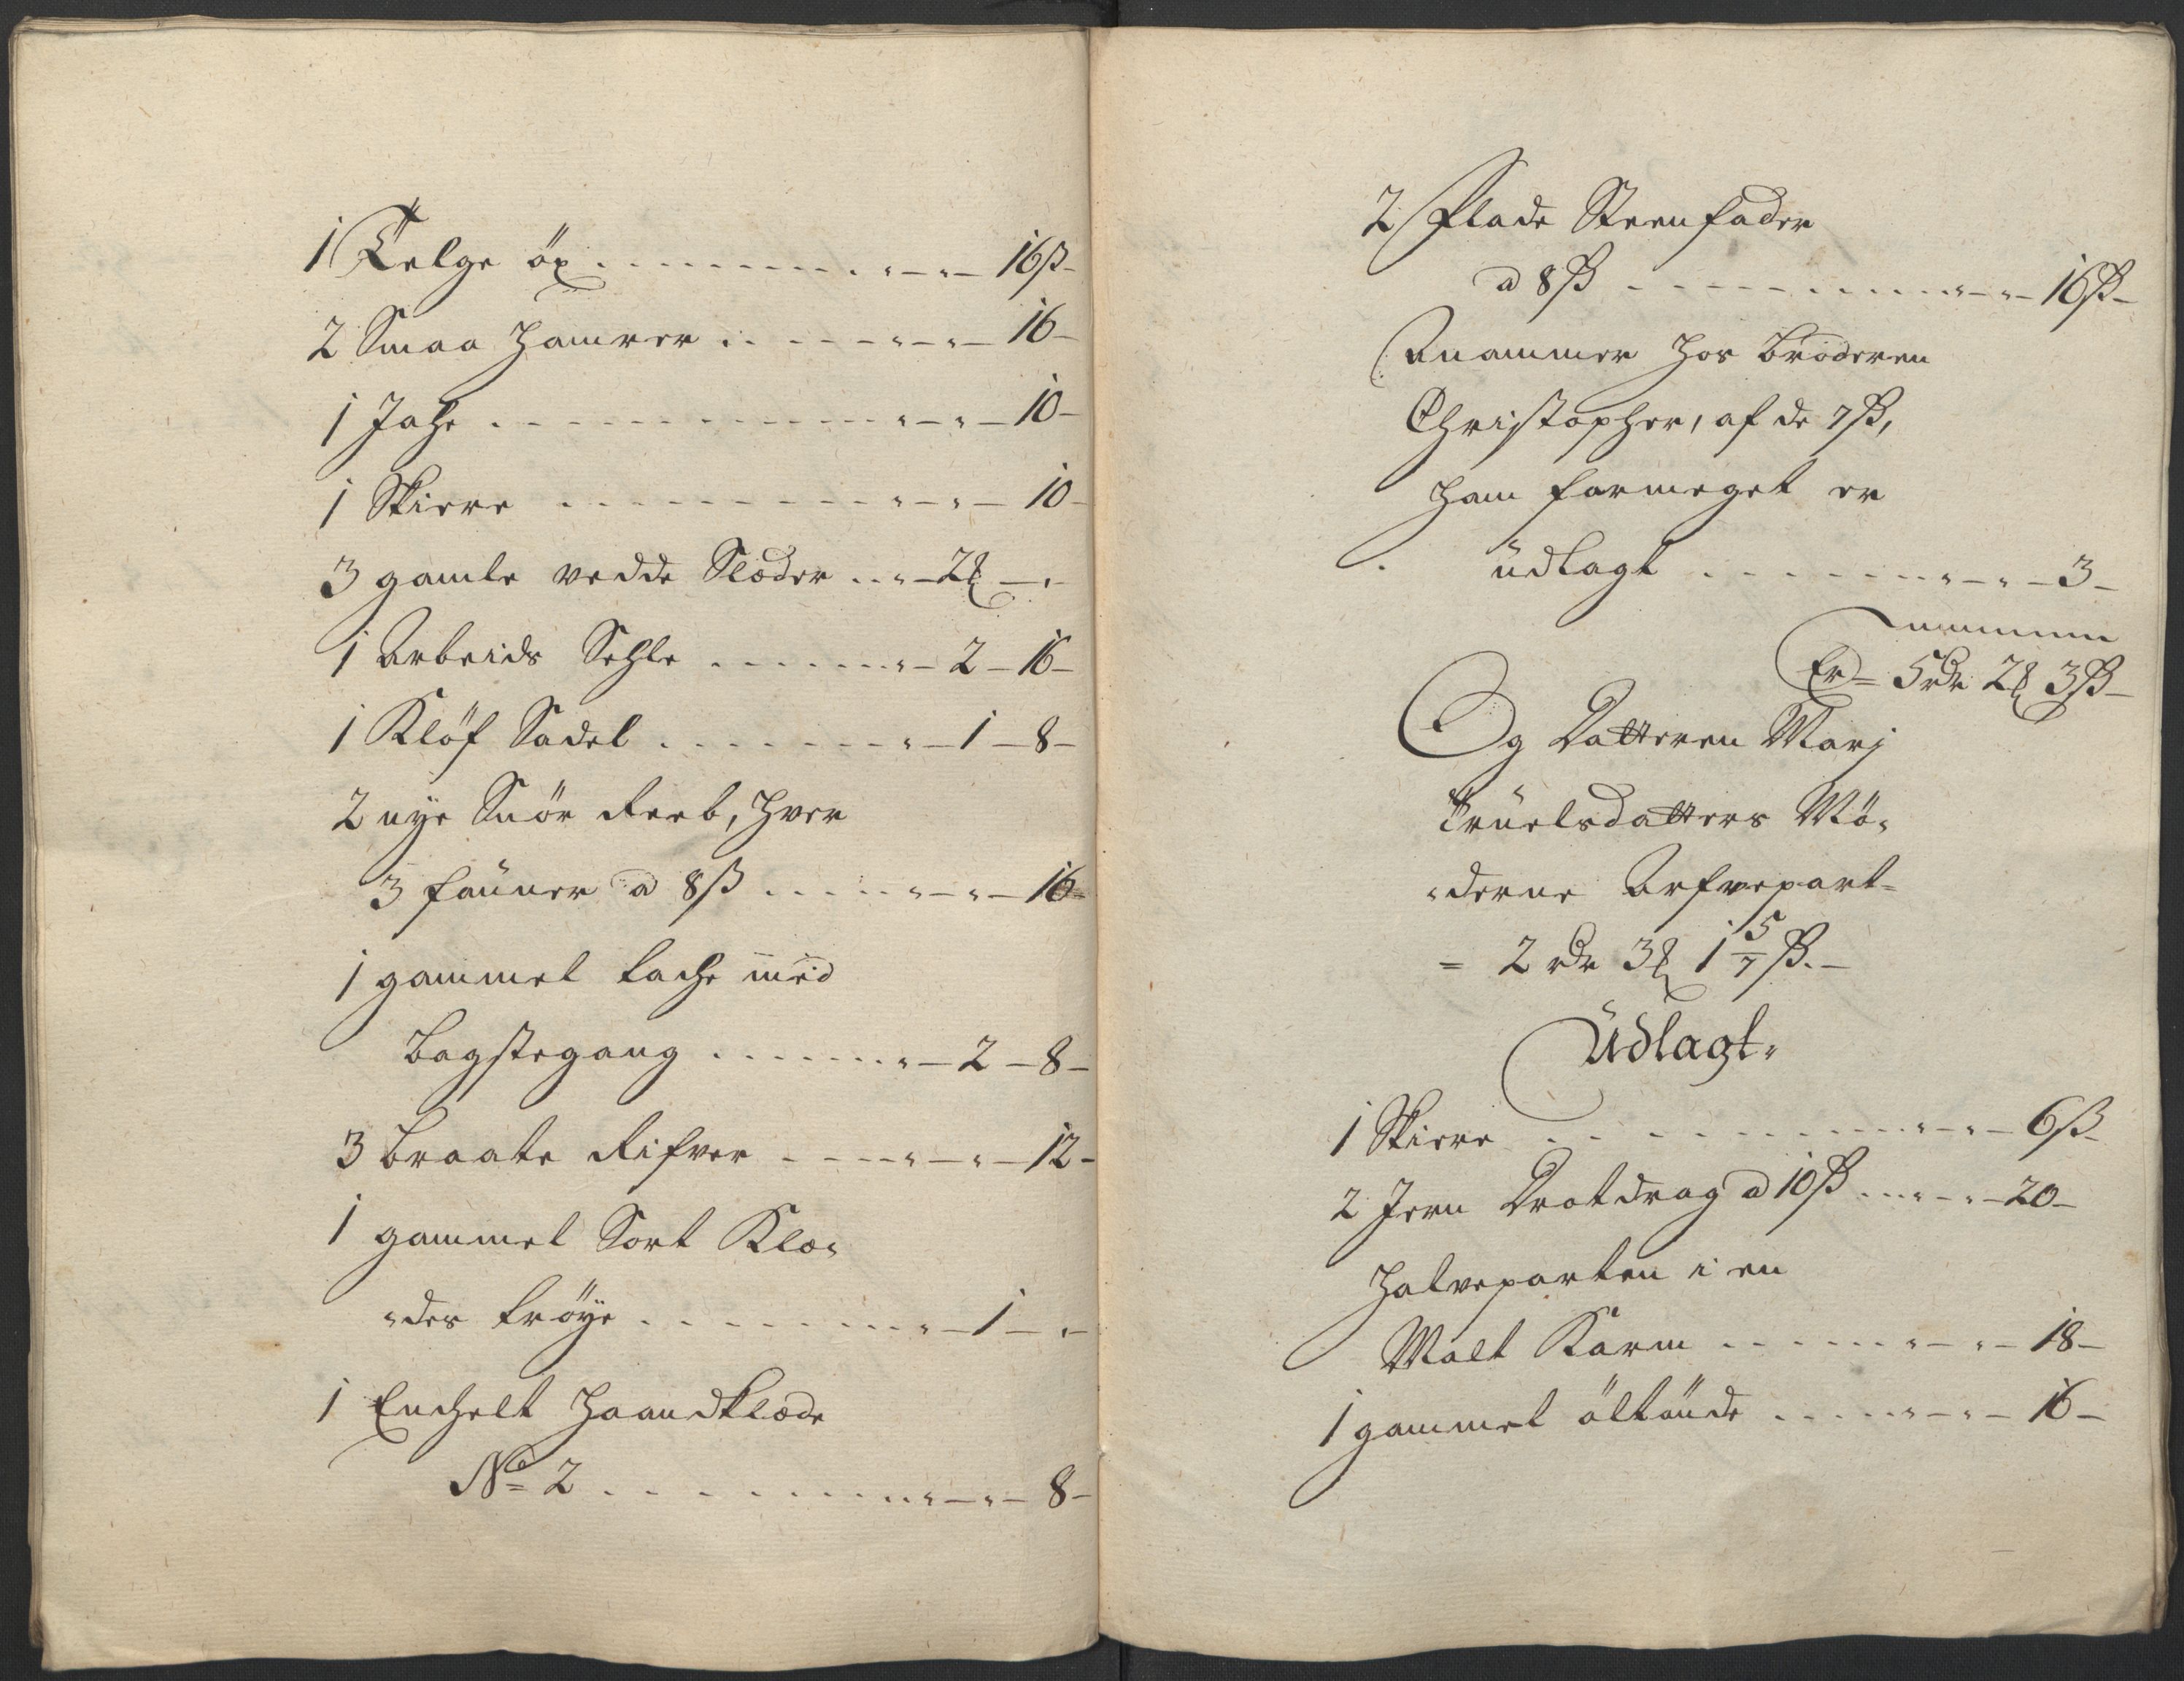 1 Telge öx . . . . . . . . . „ – „ – 16 ß –
2 Smaa Hamrer . . . . . „ – „ – 16 –
1 Jahr . . . . . . . . . . . „ – „ – 10 –
1 Skiere . . . . . . . . . „ – „ – 10 –
3 gamle vedde Slæder . . „ – 2 ₰ – „ –
1 Arbeids Sehle . . . . . . „ – 2 – 16 –
1 Kløf Sadel . . . . . . . „ – 1 – 8 –
2 nÿe Snör Reeb, hver
3 faüner a 8 ß . . . . . „ – „ – 16 –
1 gammel Kache med
bagstegang . . . . . . . „ – 2 – 8 –
3 Braate Rifver . . . . „ – „ – 12 –
1 gammel Sort Klæ„
„des trøÿe . . . . . . . . „ – 1 – „ –
1 Enchelt Haandklæde
No 2 . . . . . . . . . „ – „ – 8 –
2 Flade Steenfader
a 8 ß . . . . . . . . . . „ – „ – 16 ß –
Annammer hos Broderen
Christopher, af de 7 ß,
ham formeget er
üdlagt . . . . . . . „ – „ – 3 –
Er = 5 rdr 2 ₰ 3 ß –
Og Datteren Marj
Trüelsdatters Mø„
„derne Arfvepart =
= 2 rdr 3 ₰ 1 5/7 ß. –
Üdlagt„
1 Skiere . . . . . . . . . . „ – „ – 6 ß –
2 Jern Drotdrag a 10 ß . . „ – „ – 20 –
Halveparten i en
Malt Karm . . . . . . „ – „ – 18 –
1 gammel öltønde . . . . . „ – „ – 16 –